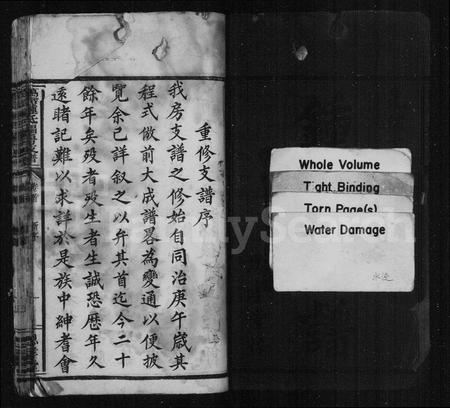 重修支譜序
我房支譜之修始自同治庚午歲其
程式倣前大成譜畧為變通以便披
覽余已詳叙之以弁其首迄今二十
餘年矣歿者歿生者生誠恐歷年久
遠賭記難以求詳於是族中紳耆會
Whole Volume
Tight Binding
Torn Page(s)
Water Damage
FamilySearch